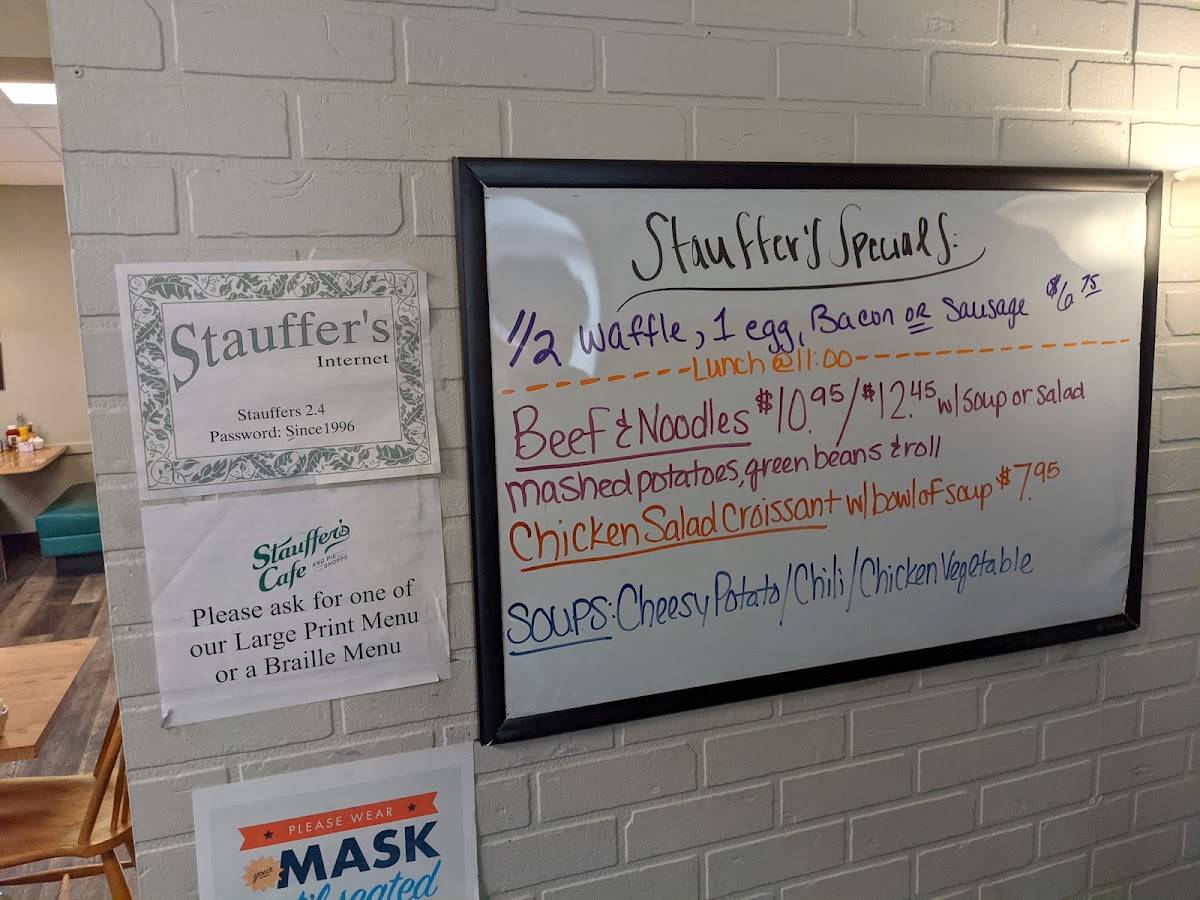 Stauffer's
Internet
Stauffers 2.4
Password: Since1996
Stauffer's
Cafe AND PIE SHOPPE
Please ask for one of
our Large Print Menu
or a Braille Menu
PLEASE WEAR
your MASK
'til seated
Stauffer's Specials:
1/2 waffle, 1 egg, Bacon OR Sausage $6.75
Lunch @ 11:00
Beef & Noodles $10.95/$12.45 w/ soup or salad
mashed potatoes, green beans & roll
Chicken Salad Croissant w/ bowl of soup $7.95
SOUPS: Cheesy Potato/Chili/Chicken Vegetable